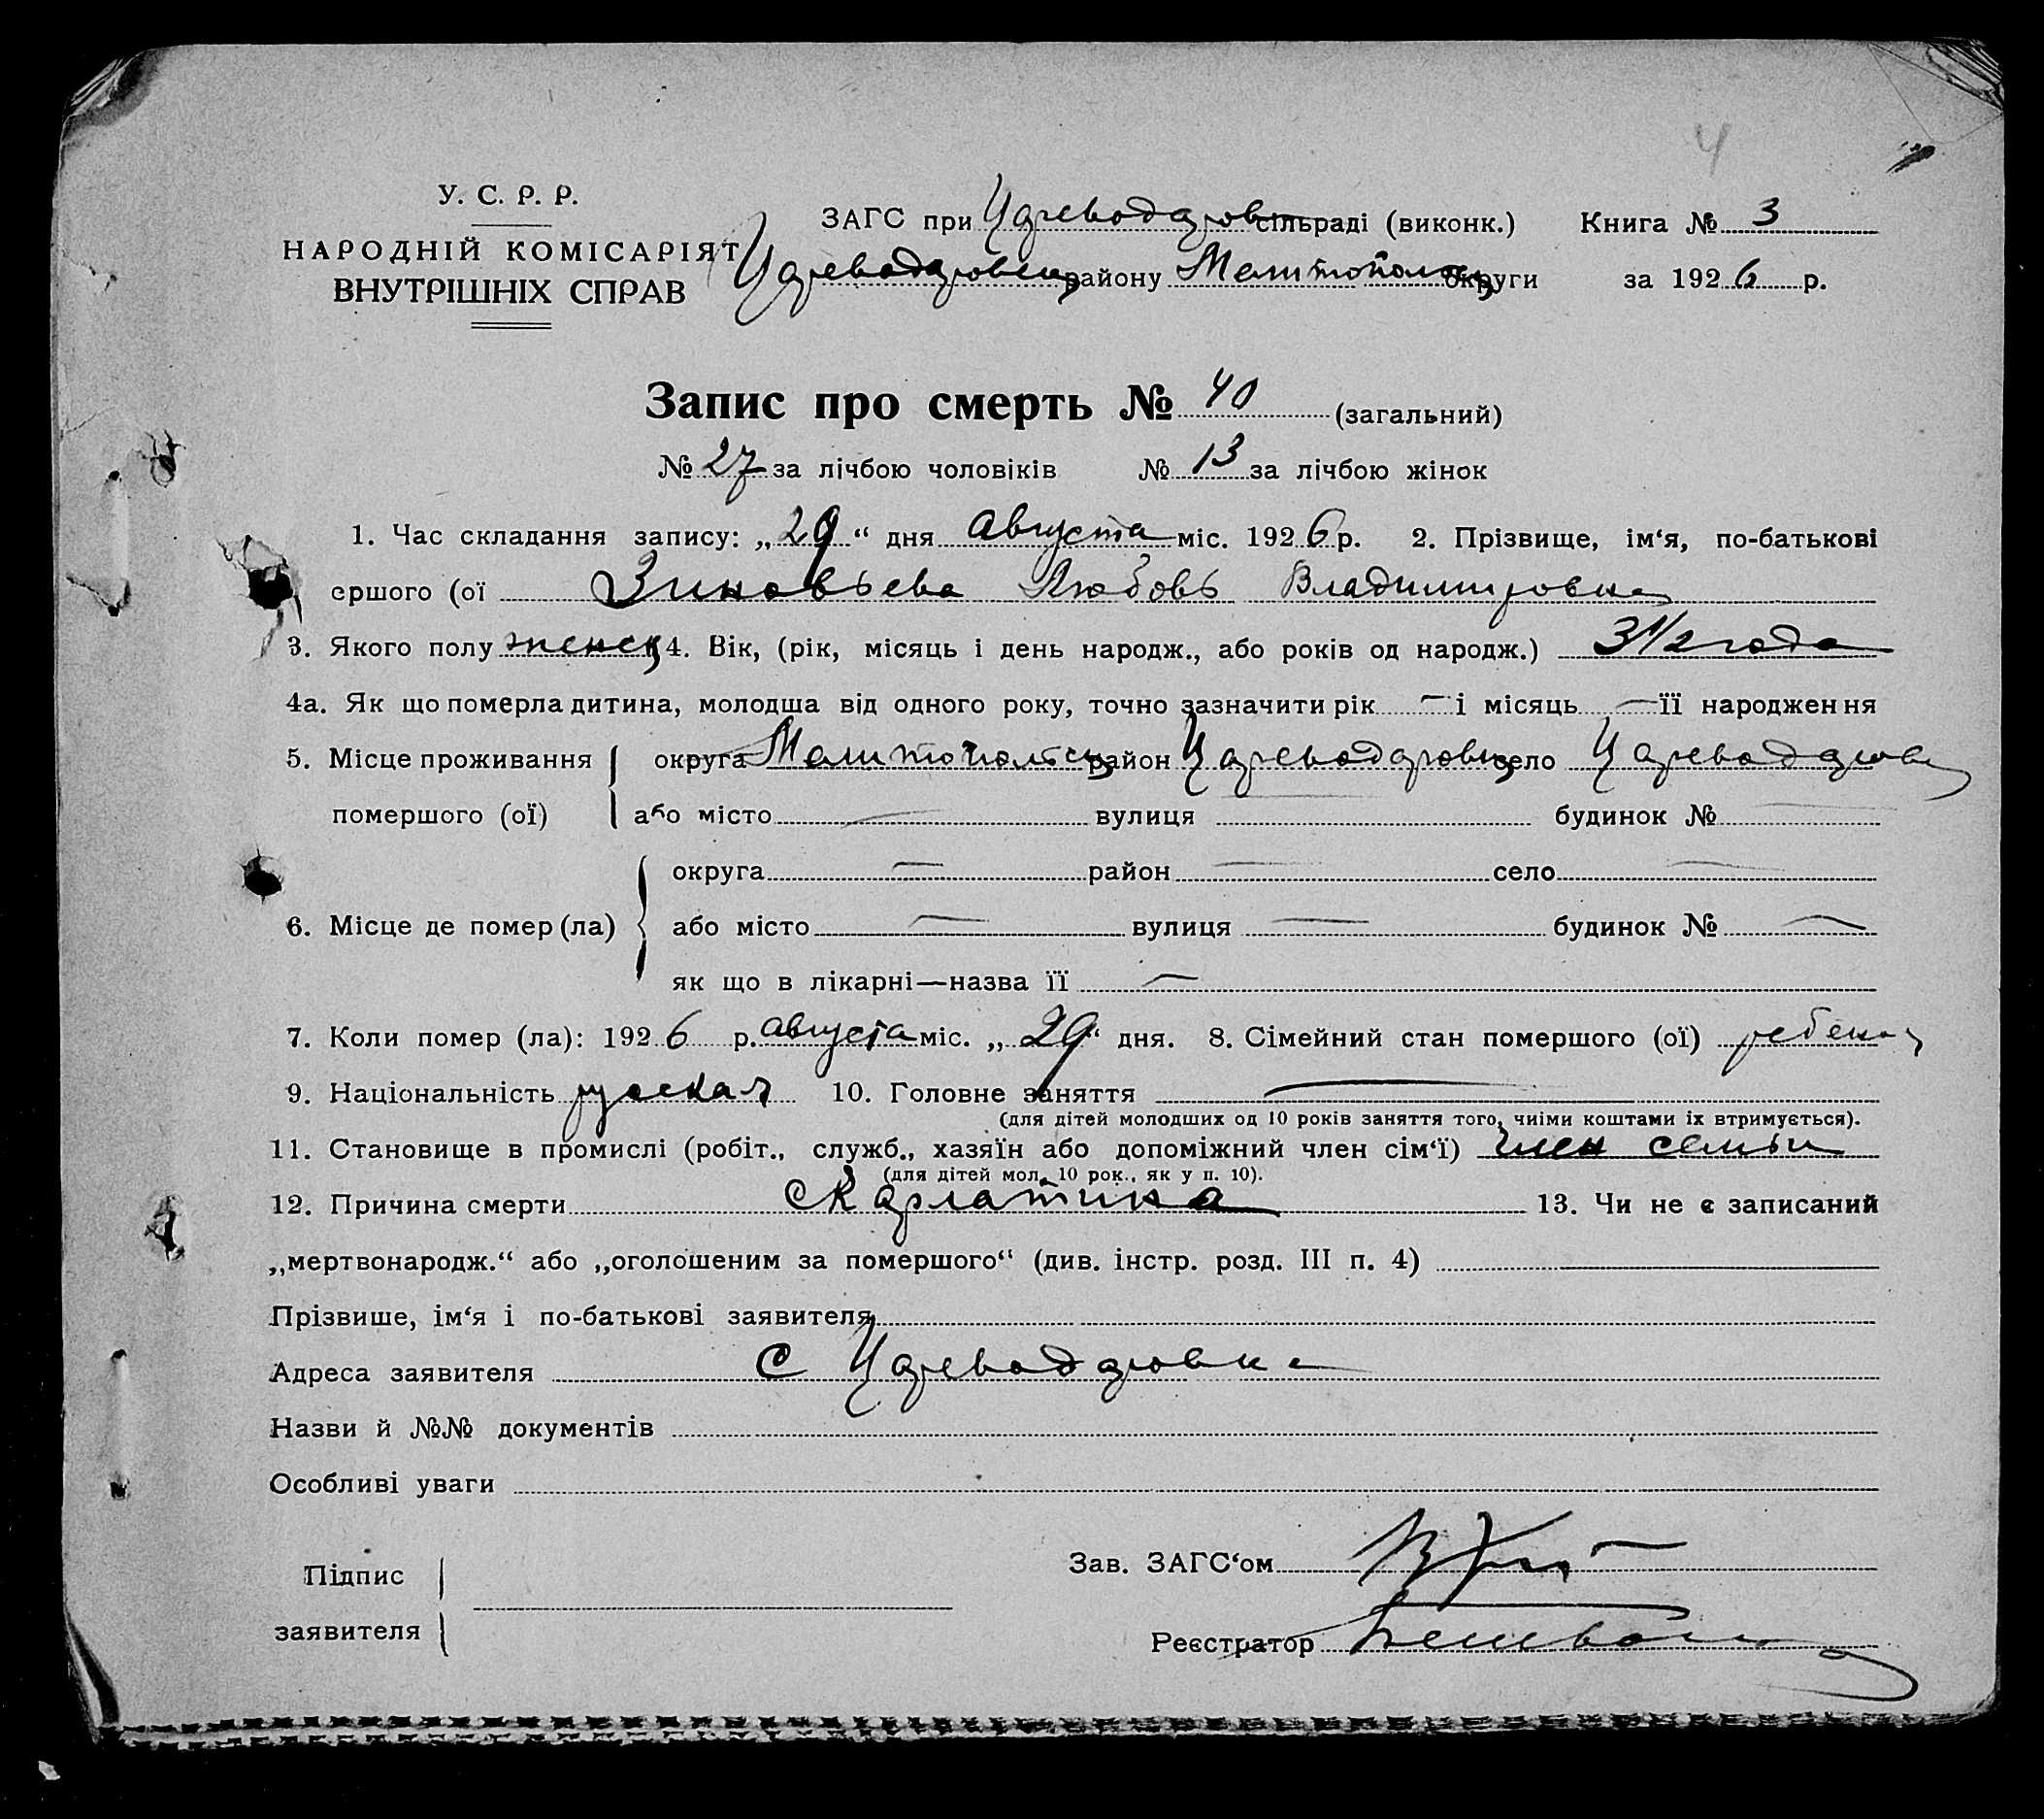 4
У. С. Р. Р.
НАРОДНІЙ КОМІСАРІЯТ
ВНУТРІШНІХ СПРАВ
ЗАГС при Цареводаровск сільраді (виконк.) Книга № 3
Цареводаровск району Мелитопольск округи за 1926 р.
Запис про смерть № 40 (загальний)
№ 27 за лічбою чоловіків № 13 за лічбою жінок
1. Час складання запису: „29“ дня августа міс. 1926 р. 2. Прізвище, ім‘я, по-батькові
ершого (ої Зиновьева Любовь Владимировна
3. Якого полу женск 4. Вік, (рік, місяць і день народж., або років од народж.) 3 1/2 года
4а. Як що померла дитина, молодша від одного року, точно зазначити рік — і місяць — її народження
5. Місце проживання округа Мелитопольск район Цареводаровк село Цареводаровк
помершого (ої) або місто — вулиця — будинок № —
округа — район — село —
6. Місце де помер (ла) або місто — вулиця — будинок № —
як що в лікарні—назва її —
7. Коли помер (ла): 1926 р. августа міс. „29“ дня. 8. Сімейний стан помершого (ої) ребенок
9. Національність русская 10. Головне заняття —
(для дітей молодших од 10 років заняття того, чиїми коштами їх втримується).
11. Становище в промислі (робіт., служб., хазяїн або допоміжний член сім‘ї) член семьи
(для дітей мол. 10 рок., як у п. 10).
12. Причина смерти скарлатина 13. Чи не є записаний
„мертвонародж.“ або „оголошеним за помершого“ (див. інстр. розд. III п. 4)
Прізвише, ім‘я і по-батькові заявителя
Адреса заявителя с Цареводаровка
Назви й №№ документів
Особливі уваги
Підпис
заявителя
Зав. ЗАГС‘ом
Реєстратор